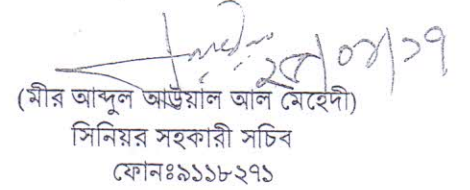 (মীর আব্দুল আউয়াল আল মেহেদী)
সিনিয়র সহকারী সচিব
ফোনঃ৯১১৮২৭১